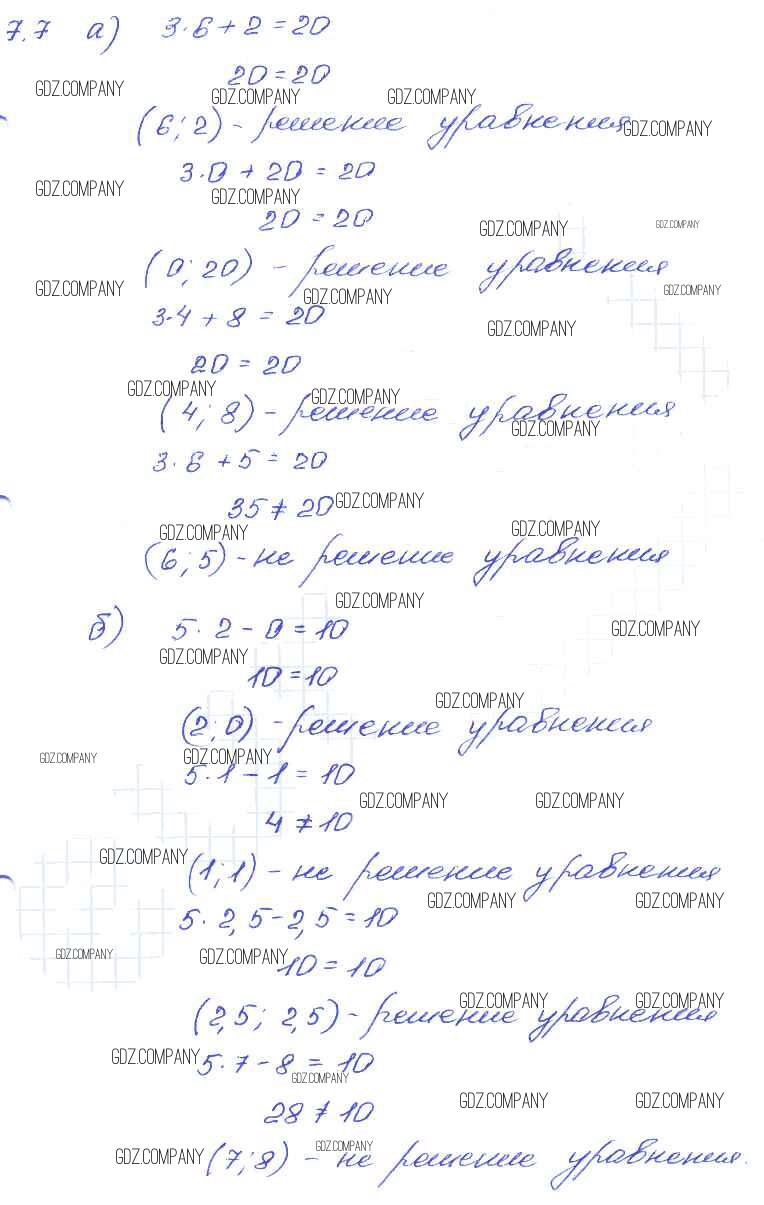 7.7 а) 3·6+2=20
20=20
GDZ.COMPANY GDZ.COMPANY GDZ.COMPANY
(6;2) - решение уравнения
GDZ.COMPANY
3·0+20=20
GDZ.COMPANY GDZ.COMPANY
20=20
GDZ.COMPANY GDZ.COMPANY
(0;20) - решение уравнения
GDZ.COMPANY GDZ.COMPANY GDZ.COMPANY
3·4+8=20
GDZ.COMPANY
20=20
GDZ.COMPANY GDZ.COMPANY
(4;8) - решение уравнения
GDZ.COMPANY
3·6+5=20
35≠20
GDZ.COMPANY
GDZ.COMPANY GDZ.COMPANY
(6;5) - не решение уравнения
GDZ.COMPANY
б) 5·2-0=10
GDZ.COMPANY
GDZ.COMPANY
10=10
GDZ.COMPANY
(2;0) - решение уравнения
GDZ.COMPANY GDZ.COMPANY
5·1-1=10
GDZ.COMPANY GDZ.COMPANY
4≠10
GDZ.COMPANY
(1;1) - не решение уравнения
GDZ.COMPANY GDZ.COMPANY
5·2,5-2,5=10
GDZ.COMPANY GDZ.COMPANY
10=10
GDZ.COMPANY GDZ.COMPANY
(2,5; 2,5) - решение уравнения
GDZ.COMPANY
5·7-8=10
GDZ.COMPANY
28≠10
GDZ.COMPANY GDZ.COMPANY
GDZ.COMPANY GDZ.COMPANY
(7;8) - не решение уравнения.